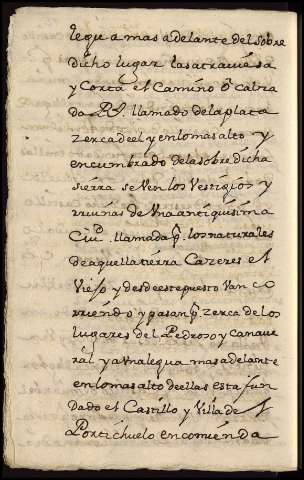 legua mas adelante del sobre
dicho lugar las atraviesa
y Corta el Camino o Calça
da Rl. llamado de la plata
zerca de el y en lo mas alto y
encumbrado de la sobre dicha
sierra se ven los Vestigios y
rruinas de Vna antiquisima
Ciud. llamada pr. los naturales
de aquella tierra Cazeres el
Viejo y desde este puesto Van co
rriendo y pasan pr. zerca de los
lugares del Pedroso y Canaue
ral y a Vna legua mas adelante
en lo mas alto de ellas esta fun
dado el Castillo y Villa de el
Portichuelo encomienda